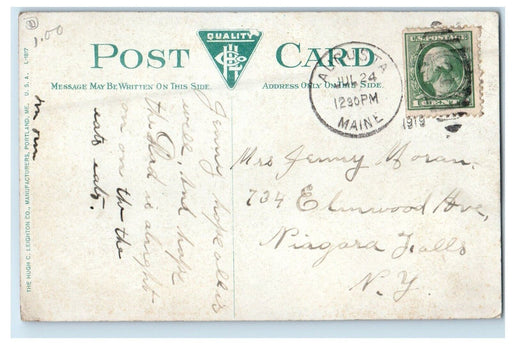 1.00
POST CARD
QUALITY
MESSAGE MAY BE WRITTEN ON THIS SIDE.
ADDRESS ONLY ON THE SIDE.
AUGUSTA
JUL 24
12 30 PM
MAINE
1913
U.S. POSTAGE
1 CENT
THE HUGH C. LEIGHTON CO., MANUFACTURERS, PORTLAND, ME. U.S.A.
Jenny hope all is
well, and hope
the is alright
on the the
eats eats.
Mrs Jenny Moran.
734 Elmwood Ave,
Niagara Falls
N.Y.